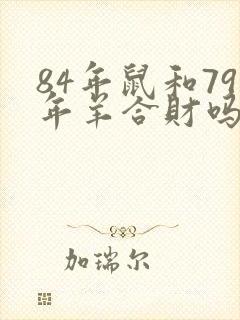 84年鼠和79
年羊合財吗
加瑞尔